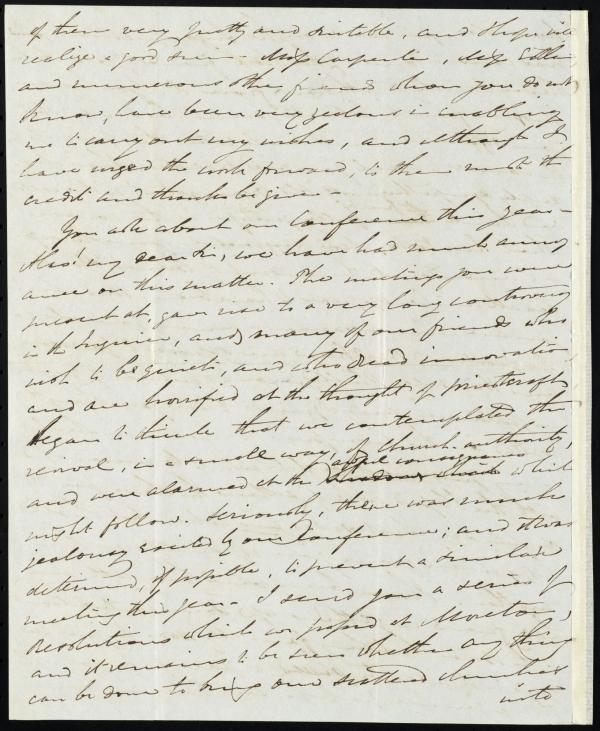 of them very pretty and suitable, and I hope will
realize a good sum. Miss Carpenter, Miss
and numerous other friends whom you do not
know, have been very zealous in enabling
me to carry out my wishes, and although I
have urged the work forward, to them must the
credit and thanks be given -
You ask about our Conference this year -
Alas! my dear Sir, we have had much annoy
ance on this matter. The meetings you were
present at, gave rise to a very long controversy
in the Inquirer, and many of our friends who
wish to be quiet, and who dread innovation,
and are horrified at the thought of priestcraft,
began to think that we contemplated the
revival, in a small way, of Church authority,
and were alarmed at the awful consequences which
might follow. Seriously, there was much
jealousy excited by our Conference; and it was
determined, if possible, to prevent a similar
meeting this year - I send you a series of
Resolutions which we passed at Moreton,
and it remains to be seen whether any thing
can be done to bring our scattered churches
into